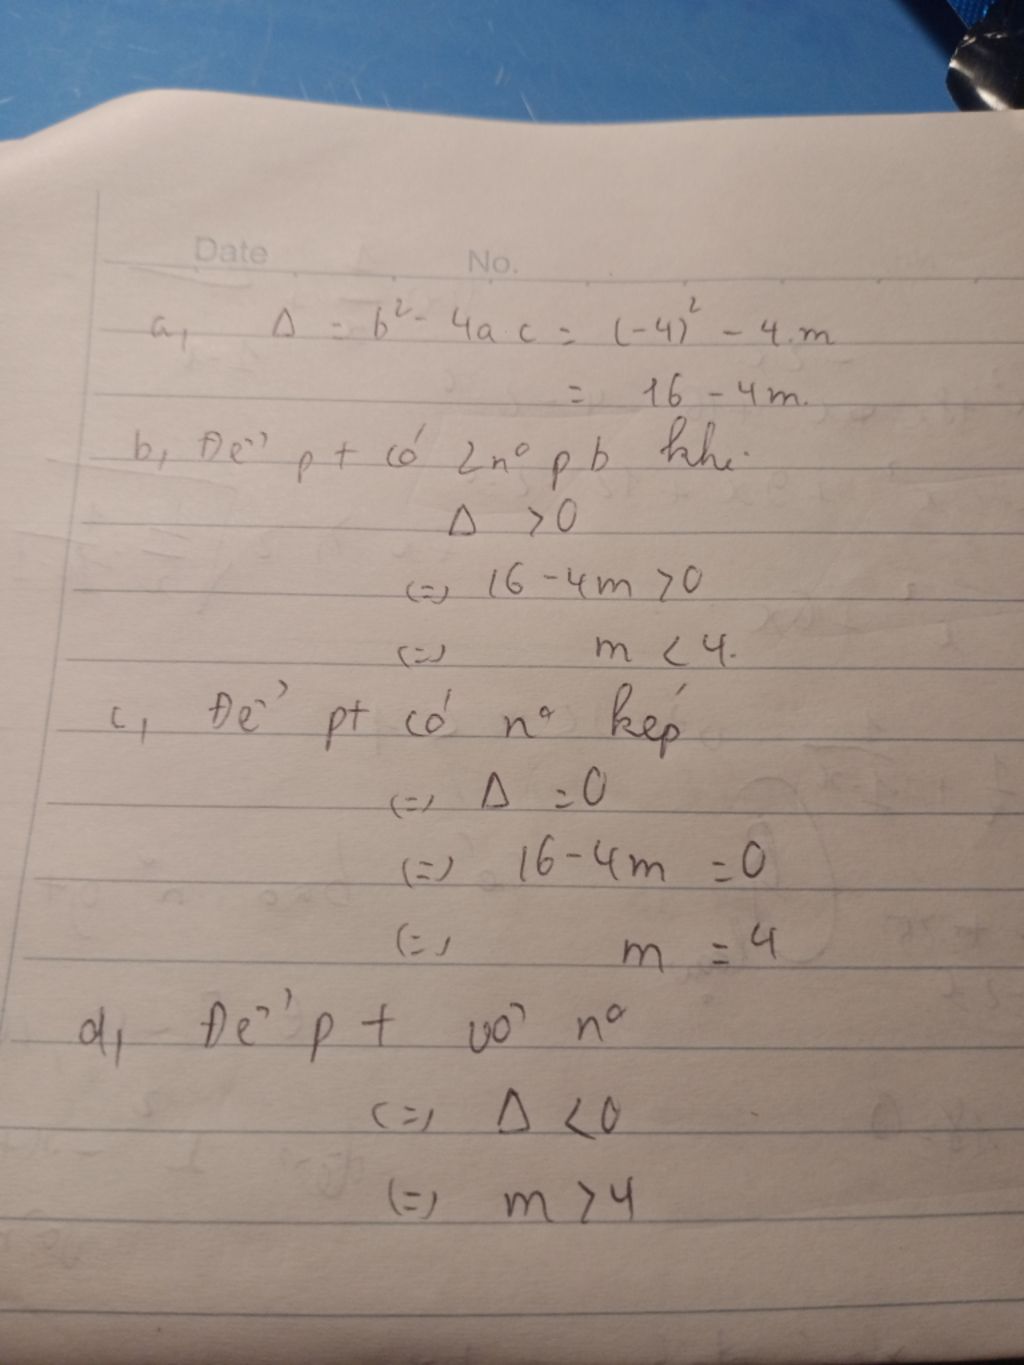 Date No.
a, Δ = b² - 4a.c = (-4)² - 4.m
= 16 - 4m.
b, Để pt có 2nº pb khi.
Δ >0
(=) 16-4m >0
(=) m < 4.
c, Để pt có nº kép
(=) Δ =0
(=) 16-4m =0
(=) m = 4
d, Để pt vô nº
(=) Δ <0
(=) m > 4